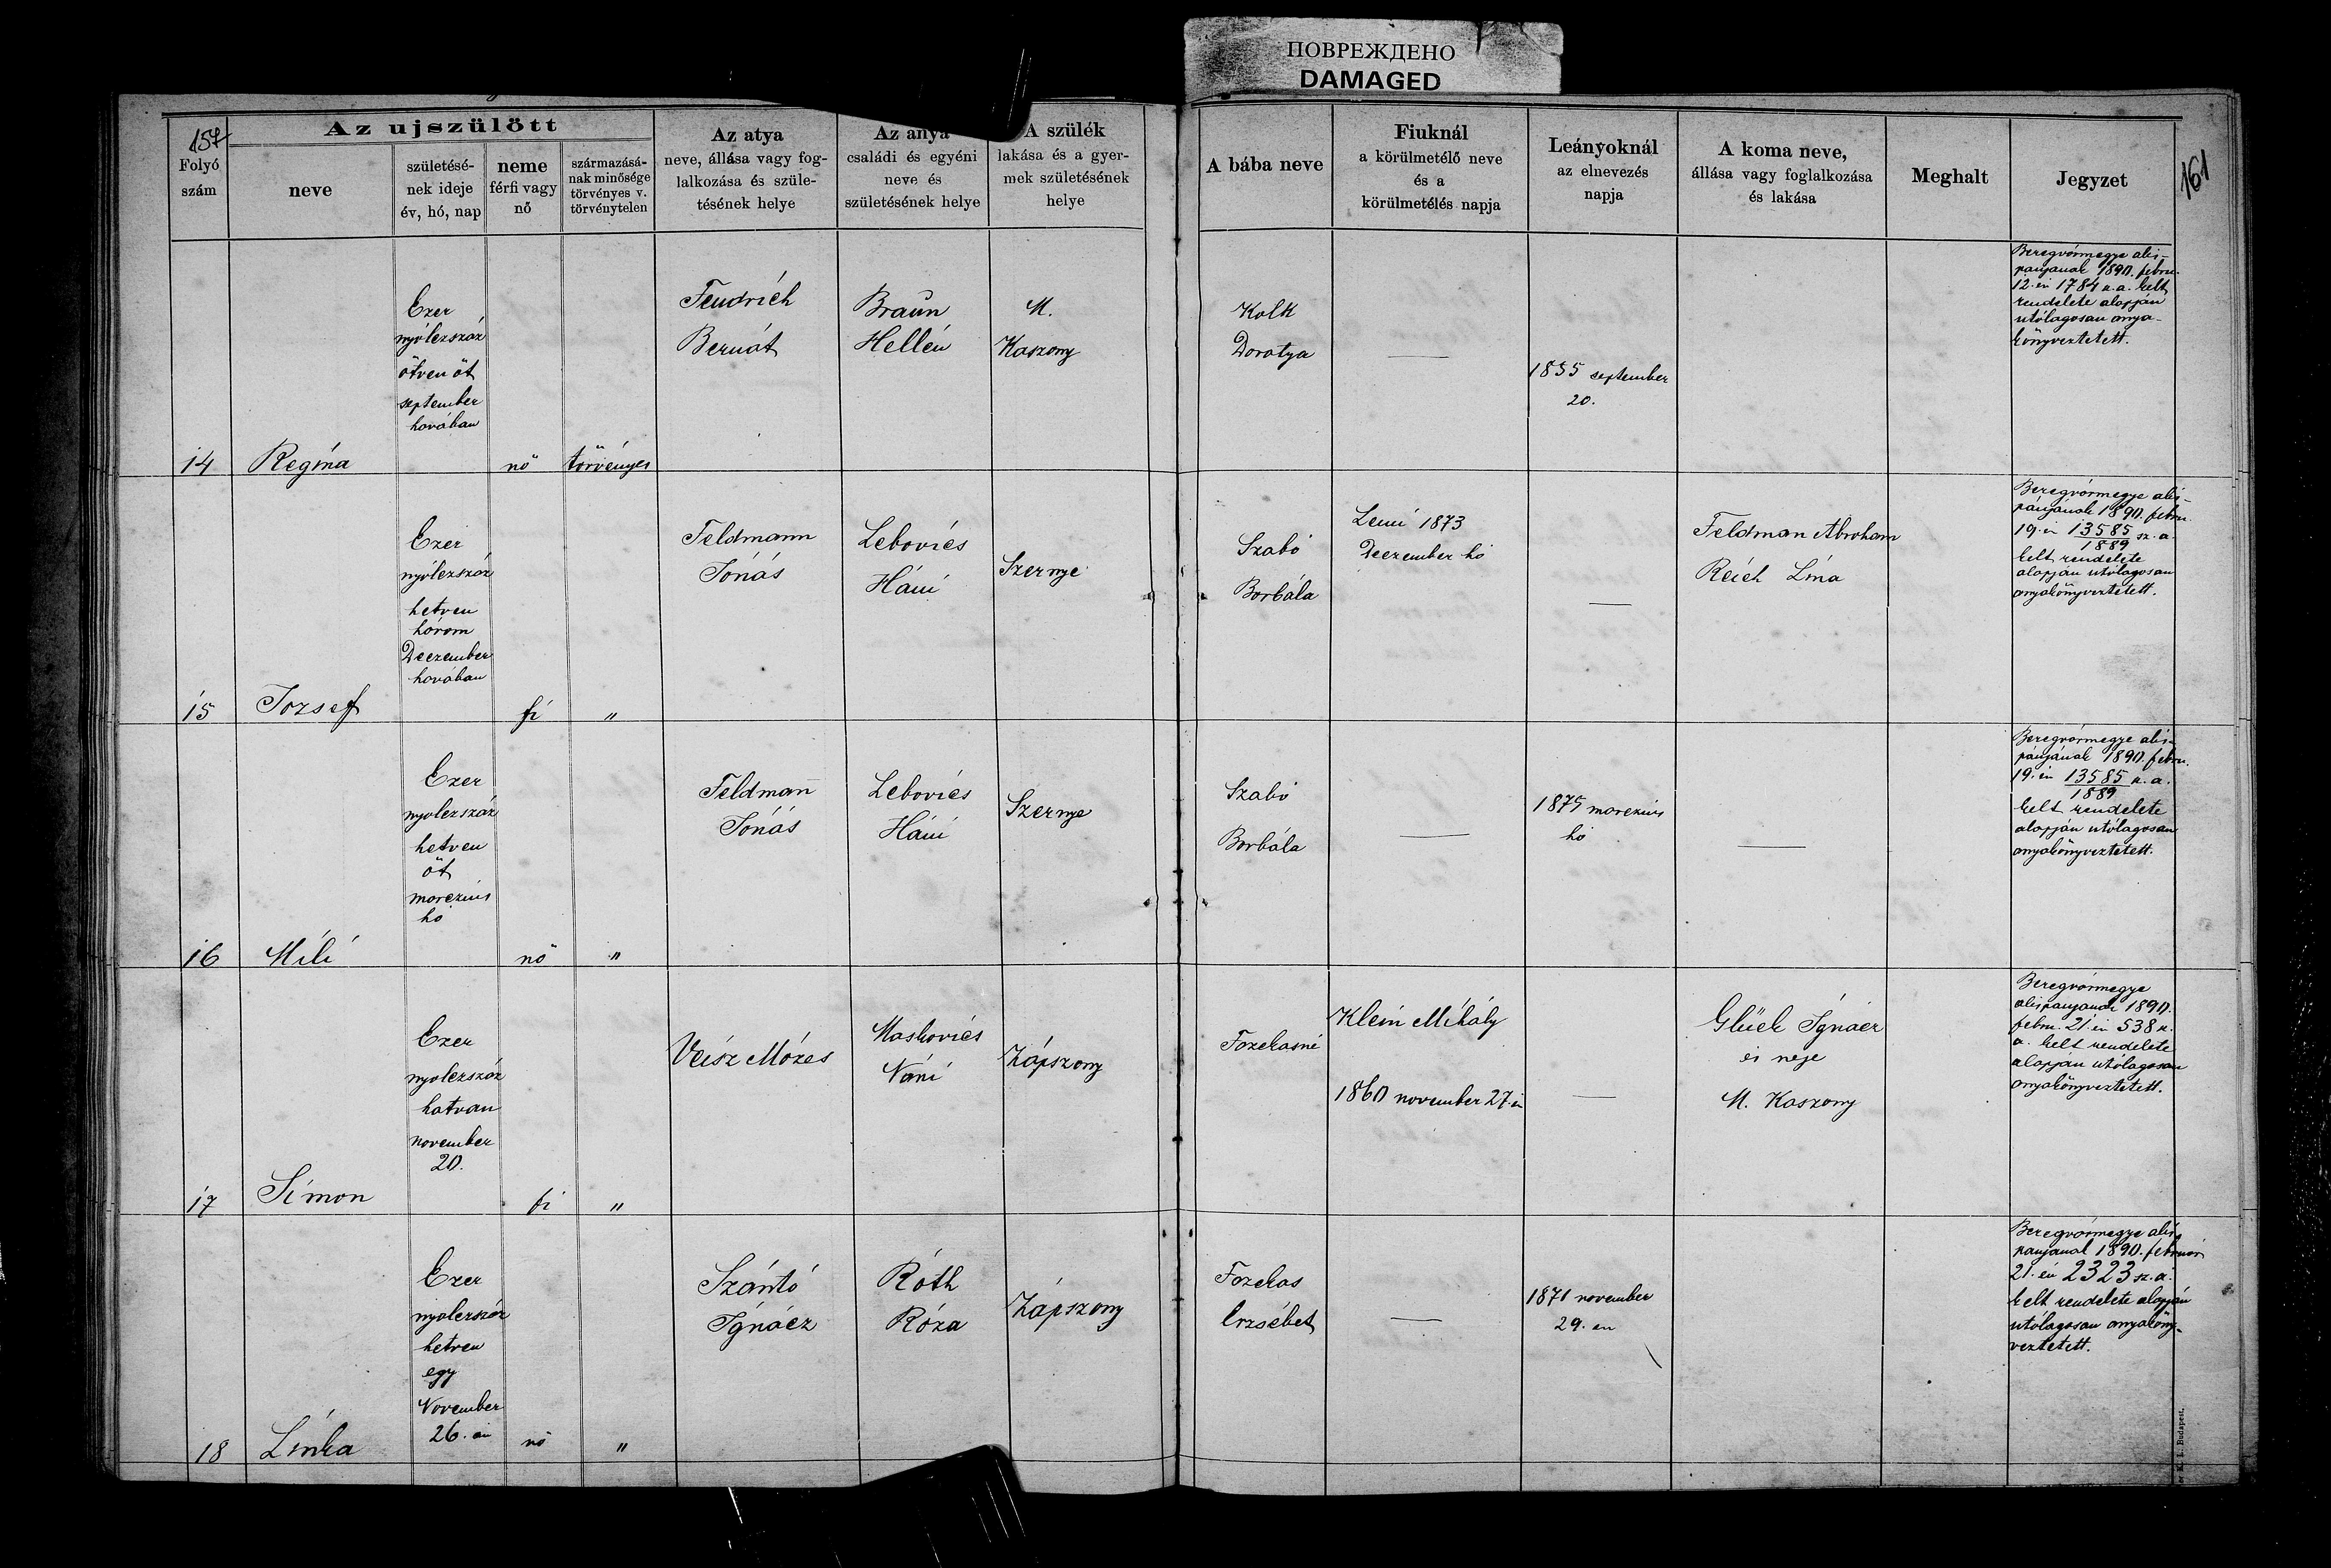 ПОВРЕЖДЕНО
DAMAGED
157
161
Az ujszülött
Folyó
szám
neve
születésé-
nek ideje
év, hó, nap
neme
férfi vagy
nő
származásá-
nak minősége
törvényes v.
törvénytelen
Az atya
neve, állása vagy fog-
lalkozása és szüle-
tésének helye
Az anya
családi és egyéni
neve és
születésének helye
A szülék
lakása és a gyer-
mek születésének
helye
A bába neve
Fiuknál
a körülmetélő neve
és a
körülmetélés napja
Leányoknál
az elnevezés
napja
A koma neve,
állása vagy foglalkozása
és lakása
Meghalt
Jegyzet
14
Regina
Ezer
nyólczszáz
ötven öt
september
havában
nö
törvényes
Fendrich
Bernát
Braun
Hellén
M.
Kaszony
Kolk
Dorotya
—
1855 september
20.
Beregvármegye alis-
pánjának 1890. febru.
12.én 1784 sz. a. kelt
rendelete alapján
utólagosan anya-
könyveztetett.
15
Jozsef
Ezer
nyólczszáz
hetven
három
Deczember
havában
fi
"
Feldmann
Jónás
Lebovics
Háni
Szernye
Szabó
Borbála
Lemi 1873
Deczember hó
—
Feldman Abraham
Reich Lina
Beregvármegye alis-
pánjának 1890. febru.
19.én 13585 sz. a.
1889
kelt rendelete
alapján utólagosan
anyakönyveztetett.
16
Mili
Ezer
nyolczszáz
hetven
öt
marczius
hó
nö
"
Feldman̄
Jónás
Lebovics
Háni
Szernye
Szabó
Borbála
—
1875 marczius
hó
—
Beregvármegye alis-
pánjának 1890. febru.
19.én 13585 sz. a.
1889
kelt rendelete
alapján utólagosan
anyakönyveztetett.
17
Simon
Ezer
nyolczszáz
hatvan
november
20.
fi
"
Veisz Mózes
Maskovics
Náni
Zápszony
Fazekasné
Klein Mihály
1860 november 27.én
—
Glück Ignácz
és neje
M. Kaszony
Beregvármegye
alispanjanak 1890.
febru. 21.én 538 sz.
a. kelt rendelete
alapján utólagosan
anyakönyveztetett.
18
Linka
Ezer
nyolczszáz
hetven
egy
November
26.án
nö
"
Szántó
Ignácz
Róth
Róza
Zápszony
Fazekas
Erzsébet
—
1871 november
29.én
Beregvármegye alis
panjanak 1890. február
21.én 2323 sz. a.
kelt rendelete alapján
utólagosan anyaköny-
veztetett.
K. L. Budapest.